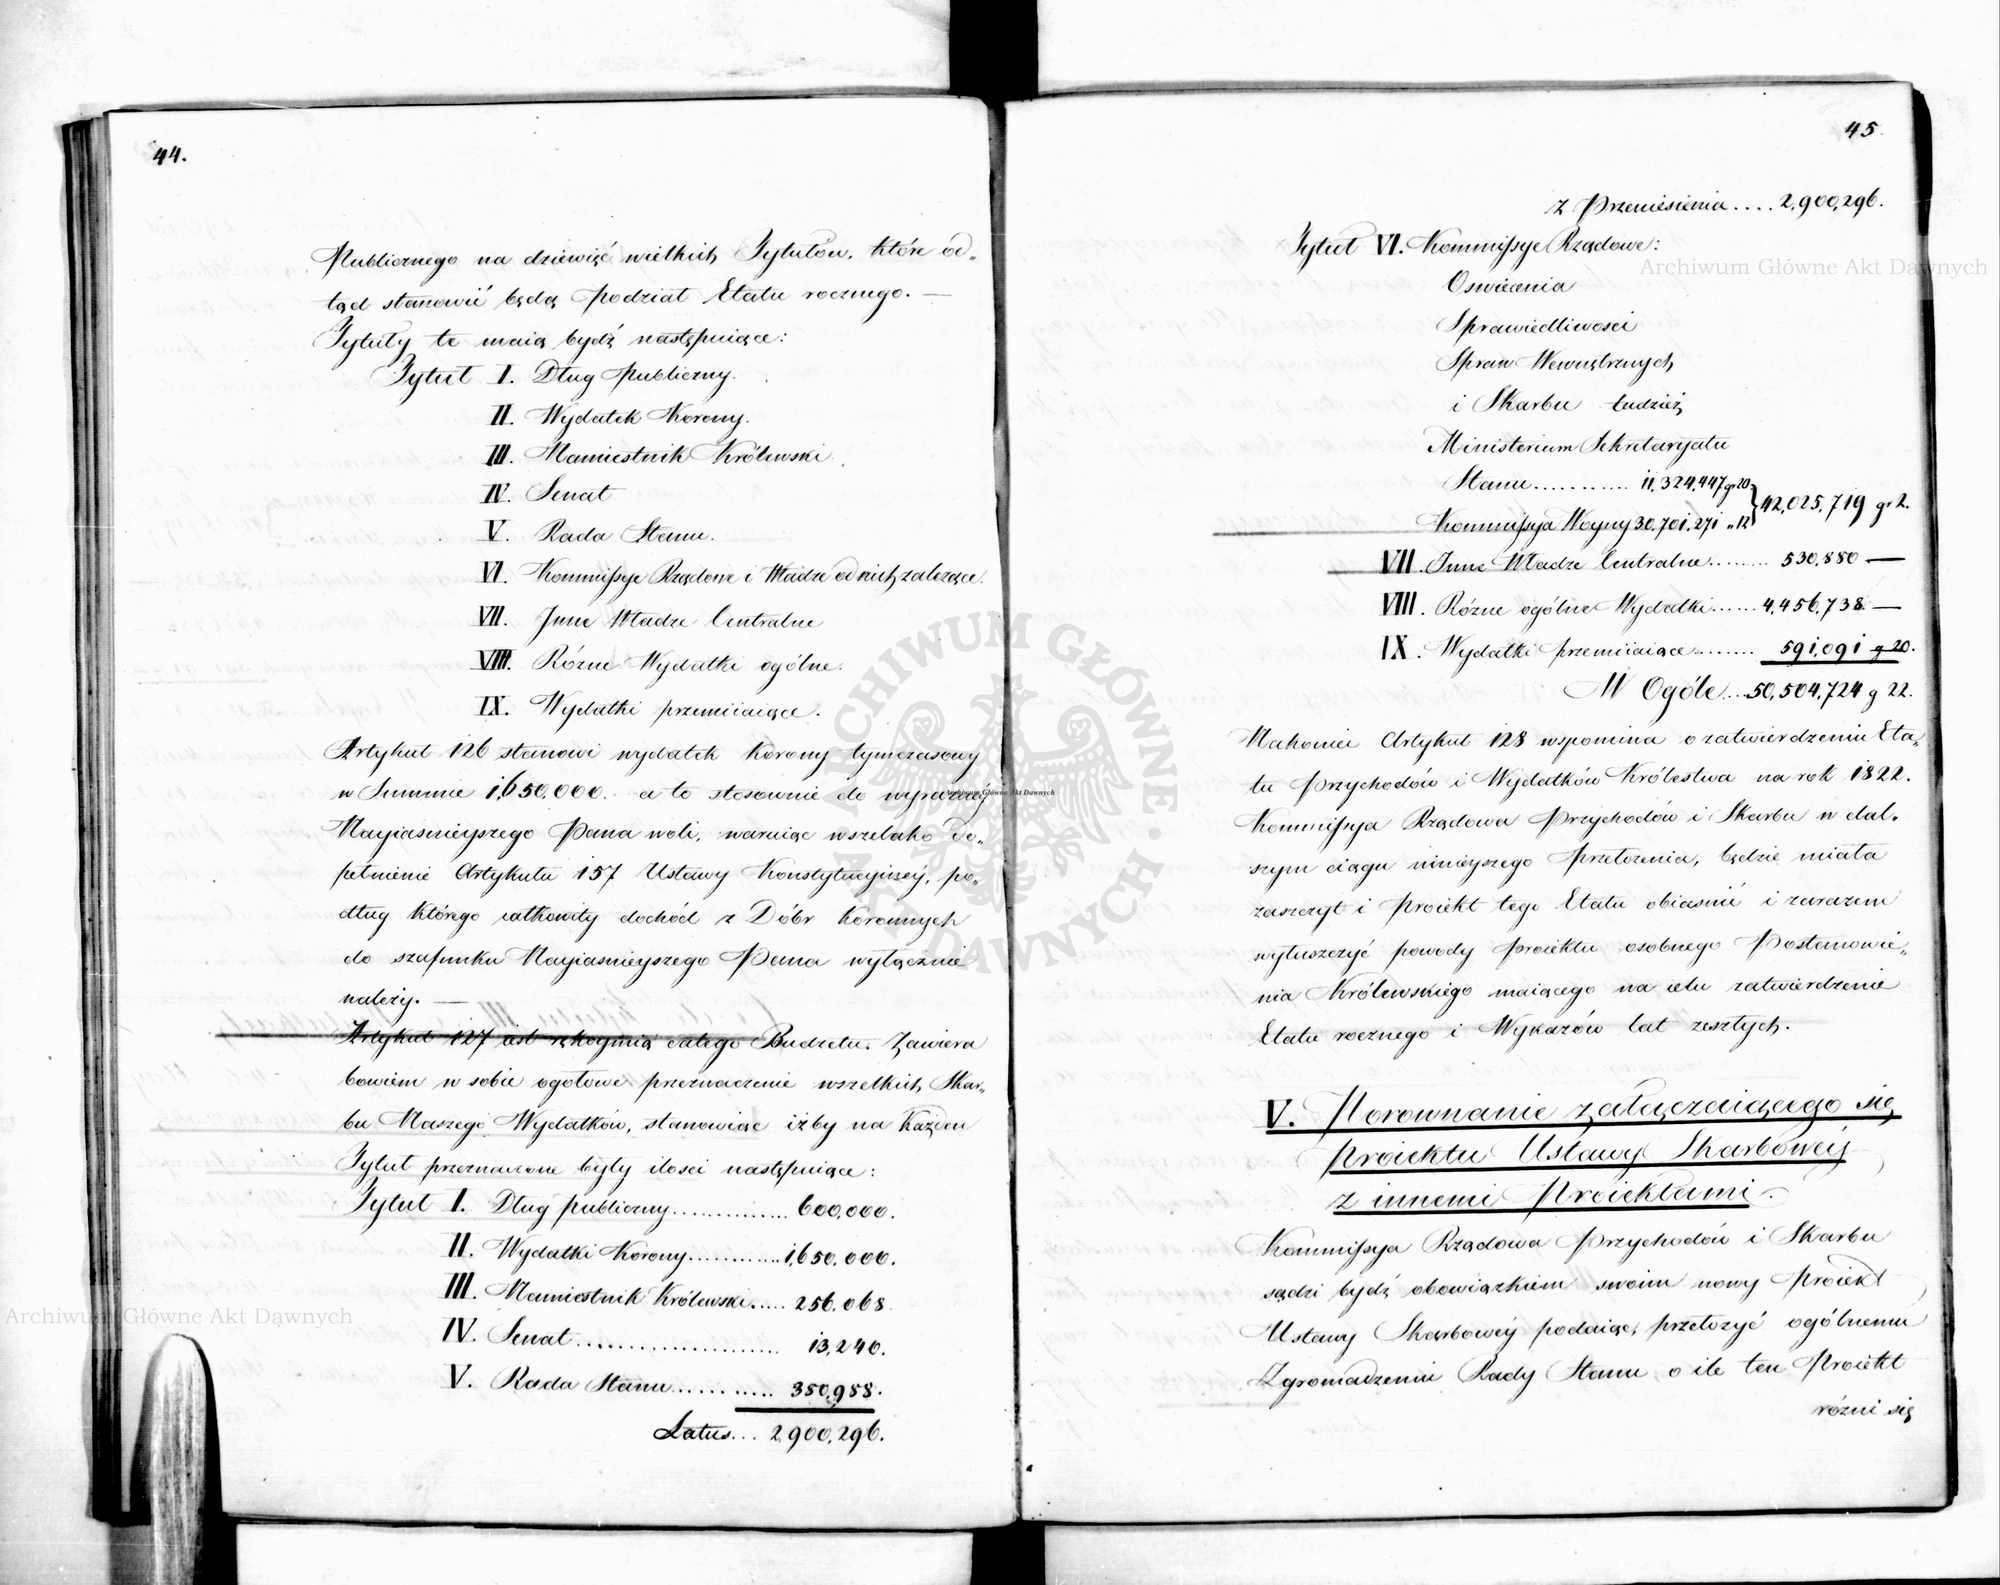 44.
Publicznego na dziewięć wielkich Tytułów, które od„
tąd stanowić będą podział Etatu rocznego. —
Tytuły te maią bydź następuiące:
Tytuł I. Dług Publiczny.
II. Wydatek Korony.
III. Namiestnik Królewski.
IV. Senat
V. Rada Stanu.
VI. Kommissye Rządowe i Władze od nich zależące.
VII. Inne Władze Centralne
VIII. Różne Wydatki ogólne.
IX. Wydatki przemiiaiące.
Artykuł 126 stanowi wydatek Korony tymczasowy
w Summie 1,650,000. a to stosownie do wyraźney
Nayiaśnieyszego Pana woli, waruiąc wszelako do„
pełnienie Artykułu 157 Ustawy Konstytucyiney, po„
dług którego całkowity dochód z Dóbr koronnych
do szafunku Nayiaśnieyszego Pana wyłącznie
należy. —
Artykuł 127 iest rękoymią całego Budżetu. Zawiera
bowiem w sobie ogółowe przeznaczenie wszelkich Skar„
bu Naszego Wydatków, stanowiąc iżby na każden
Tytuł przeznaczone były ilości następuiące:
Tytuł I. Dług publiczny.............. 600,000.
II. Wydatki Korony............ 1,650,000.
III. Namiestnik Królewski..... 256,068.
IV. Senat....................... 13,240.
V. Rada Stanu........... 350,988.
Latus... 2,900,296.
45.
Z Przeniesienia.... 2,900,296.
Tytuł VI. Kommissye Rządowe:
Oświecenia
Sprawiedliwości
Spraw Wewnętrznych
i Skarbu tudzież
Ministerium Sekretaryatu
Stanu............ 11,324,447 gr 20. } 42,025,719 gr 2.
Kommissya Woyny 30,701,271 „ 12
VII. Inne Władze Centralne......... 530,880 —
VIII. Różne ogólne Wydatki...... 4,456,738. —
IX. Wydatki przemiiaiące........ 591,091 g 20.
W Ogóle... 50,504,724 g 22.
Nakoniec Artykuł 128 wspomina o zatwierdzeniu Eta„
tu Przychodów i Wydatków Królestwa na rok 1822.
Kommissya Rządowa Przychodów i Skarbu w dal„
szym ciągu ninieyszego przełożenia, będzie miała
zaszczyt i proiekt tego Etatu obiaśnić i zarazem
wyłuszczyć powody proiektu osobnego Postanowie„
nia Królewskiego maiącego na celu zatwierdzenie
Etatu rocznego i Wykazów lat zeszłych.
V. Porownanie załączaiącego się
Proiektu Ustawy Skarbowey
z innemi Proiektami.
Kommissya Rządowa Przychodów i Skarbu
sądzi bydź obowiązkiem swoim nowy Proiekt
Ustawy Skarbowey podaiąc, przełożyć ogólnemu
Zgromadzeniu Rady Stanu o ile ten Proiekt
różni się
Archiwum Główne Akt Dawnych
Archiwum Główne Akt Dawnych
Archiwum Główne Akt Dawnych
ARCHIWUM GŁÓWNE AKT DAWNYCH